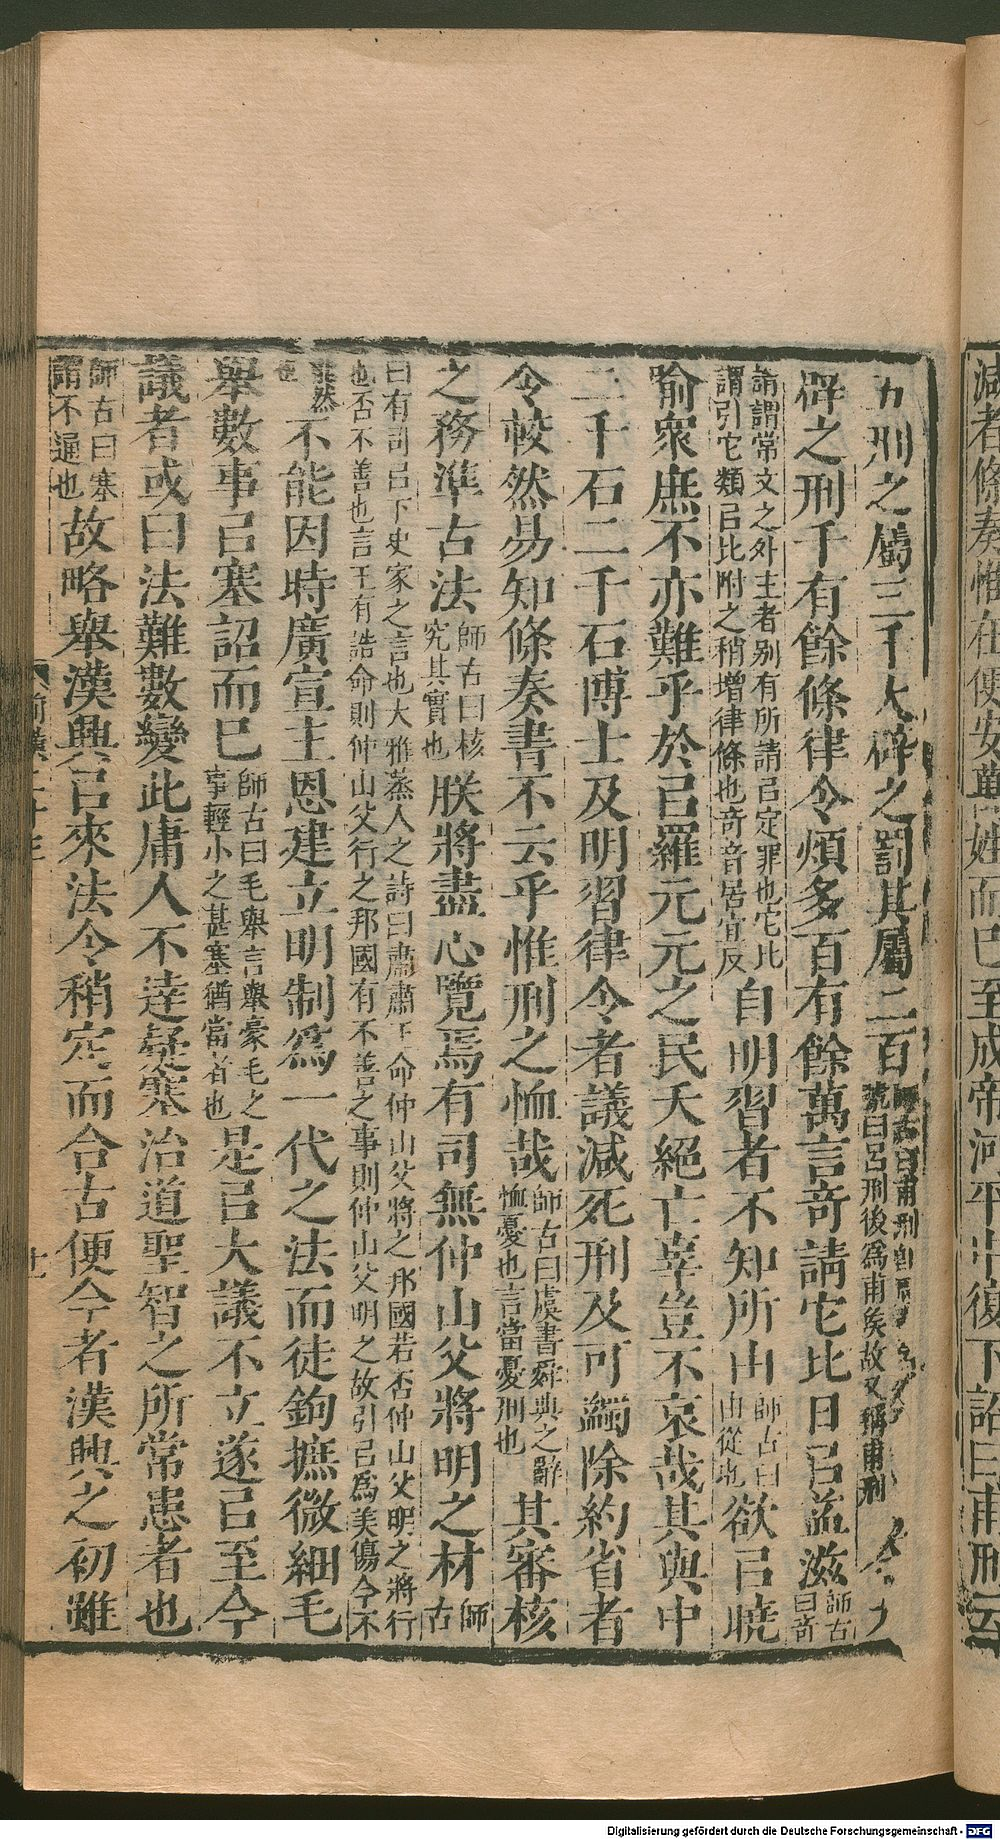 減者條奏惟在便安萬姓而已至成帝河平中復下詔曰甫刑云
五刑之屬三千大辟之罰其屬二百師古曰甫刑即周書呂刑初爲呂侯號曰呂刑後爲甫侯故又稱甫刑今大
辟之刑千有餘條律令煩多百有餘萬言奇請它比日㠯益滋師古曰奇
請謂常文之外主者別有所請㠯定罪也它比謂引它類㠯比附之稍增律條也奇音居宜反自明習者不知所由師古曰由從也欲㠯曉
喻衆庶不亦難乎於㠯羅元元之民夭絕亡辜豈不哀哉其與中
二千石二千石博士及明習律令者議減死刑及可蠲除約省者
令較然易知條奏書不云乎惟刑之恤哉師古曰虞書舜典之辭恤憂也言當憂刑也其審核
之務準古法師古曰核究其實也朕將盡心覽焉有司無仲山父將明之材師古
曰有司㠯下史家之言也大雅蒸人之詩曰肅肅王命仲山父將之邦國若否仲山父明之將行也否不善也言王有誥命則仲山父行之邦國有不善之事則仲山父明之故引㠯爲美傷今不
能然也不能因時廣宣主恩建立明制爲一代之法而徒鉤摭微細毛
舉數事㠯塞詔而已師古曰毛舉言舉豪毛之事輕小之甚塞猶當者也是㠯大議不立遂㠯至今
議者或曰法難數變此庸人不達疑塞治道聖智之所常患者也
師古曰塞謂不通也故略舉漢興㠯來法令稍定而合古便今者漢興之初雖
前漢二十三
十一
Digitalisierung gefördert durch die Deutsche Forschungsgemeinschaft - DFG